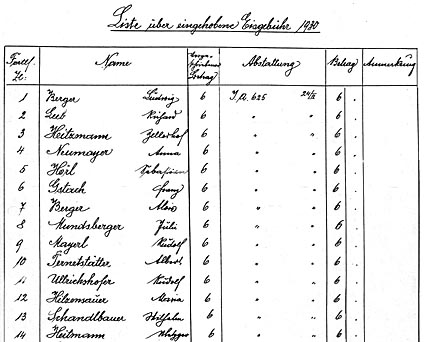 Liste über eingehobene Eisgebühr 1930
Fortl. Z. Name Vorge- schriebener Betrag Abstattung Betrag Anmerkung
1 Berger Ludwig 6 J.A. 625 24/IX 6 .
2 Leeb Richard 6 " " 6 .
3 Heitzmann Zellerhof 6 " " 6 .
4 Neumayer Anna 6 " " 6 .
5 Hörl Sebastian 6 " " 6 .
6 Gstach Franz 6 " " 6 .
7 Berger Alois 6 " " 6 .
8 Mundsberger Juli 6 " " 6 .
9 Mayerl Rudolf 6 " " 6 .
10 Fernstätter Albert 6 " " 6 .
11 Ullrichshofer Rudolf 6 " " 6 .
12 Hilzensauer Maria 6 " " 6 .
13 Schandlbauer Wilhelm 6 " " 6 .
14 Heitmann 6 " " 6 .